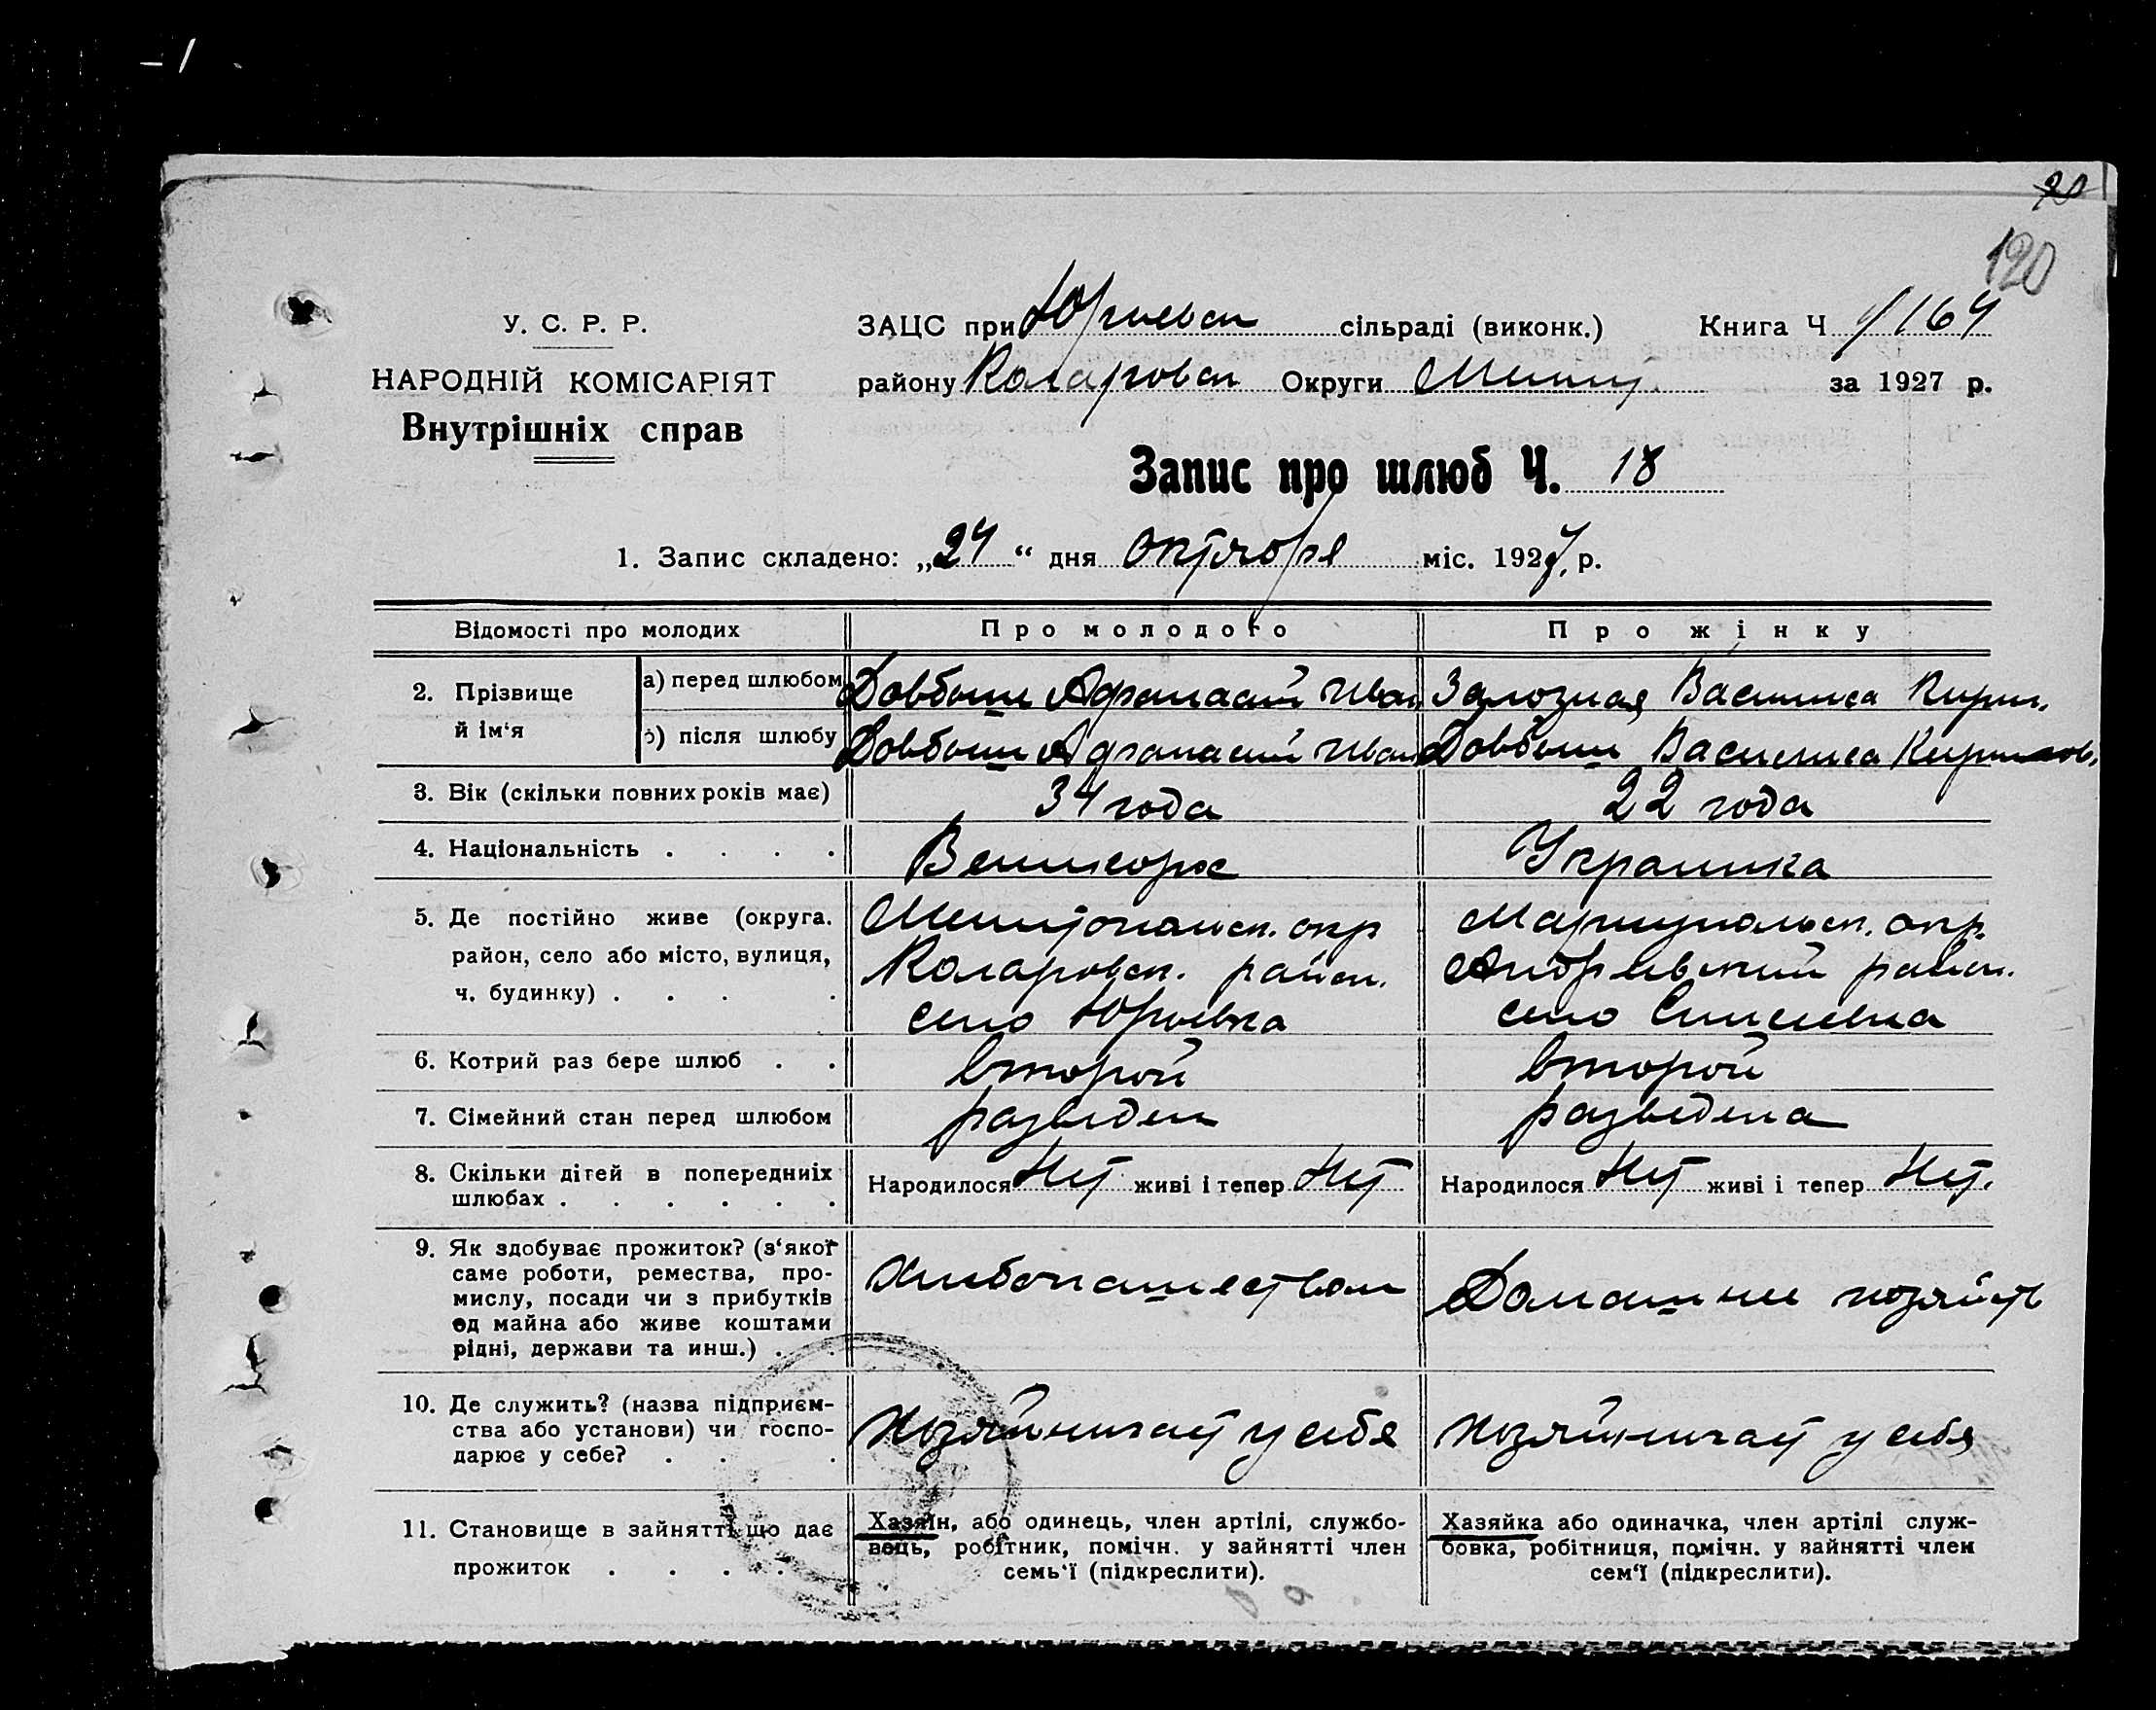 20
120
У. С. Р. Р.
НАРОДНІЙ КОМІСАРІЯТ
Внутрішніх справ
ЗАЦС при Юрьевск сільраді (виконк.) Книга Ч 1/164
району Коларовск Округи за 1927 р.
Запис про шлюб Ч. 18
1. Запис складено: „24“ дня октября міс. 1927 р.
Відомості про молодих Про молодого Про жінку
2. Прізвище й ім‘я
а) перед шлюбом Довбыш Афанасий Иван. Залозная Василиса Кирил.
б) після шлюбу Довбыш Афанасий Иван Довбыш Василиса Кирилов.
3. Вік (скільки повних років має) 34 года 22 года
4. Національність . . . . Великорос Украинка
5. Де постійно живе (округа. Мелитопольск. окр Мариупольск. окр.
район, село або місто, вулиця, Коларовск. район. Андреевский район.
ч. будинку) . . . . село Юрьевка село
6. Котрий раз бере шлюб . . второй второй
7. Сімейний стан перед шлюбом разведен разведена
8. Скільки дітей в попередниіх
шлюбах . . . . . . Народилося Нет живі і тепер Нет Народилося Нет живі і тепер Нет.
9. Як здобуває прожиток? (з‘якої
саме роботи, ремества, про-
мислу, посади чи з прибутків
од майна або живе коштами
рідні, держави та инш.) . .
Хлебопашеством Домашнее хозяйств
10. Де служить? (назва підприєм-
ства або установи) чи госпо-
дарює у себе? . . .
Хозяйничает у себя Хозяйничает у себя
11. Становище в зайнятті що дає
прожиток . . . .
Хазяїн, або одинець, член артілі, службо-
вець, робітник, помічн. у зайнятті член
семь‘ї (підкреслити).
Хазяйка або одиначка, член артілі служ-
бовка, робітниця, помічн. у зайнятті член
сем‘ї (підкреслити).